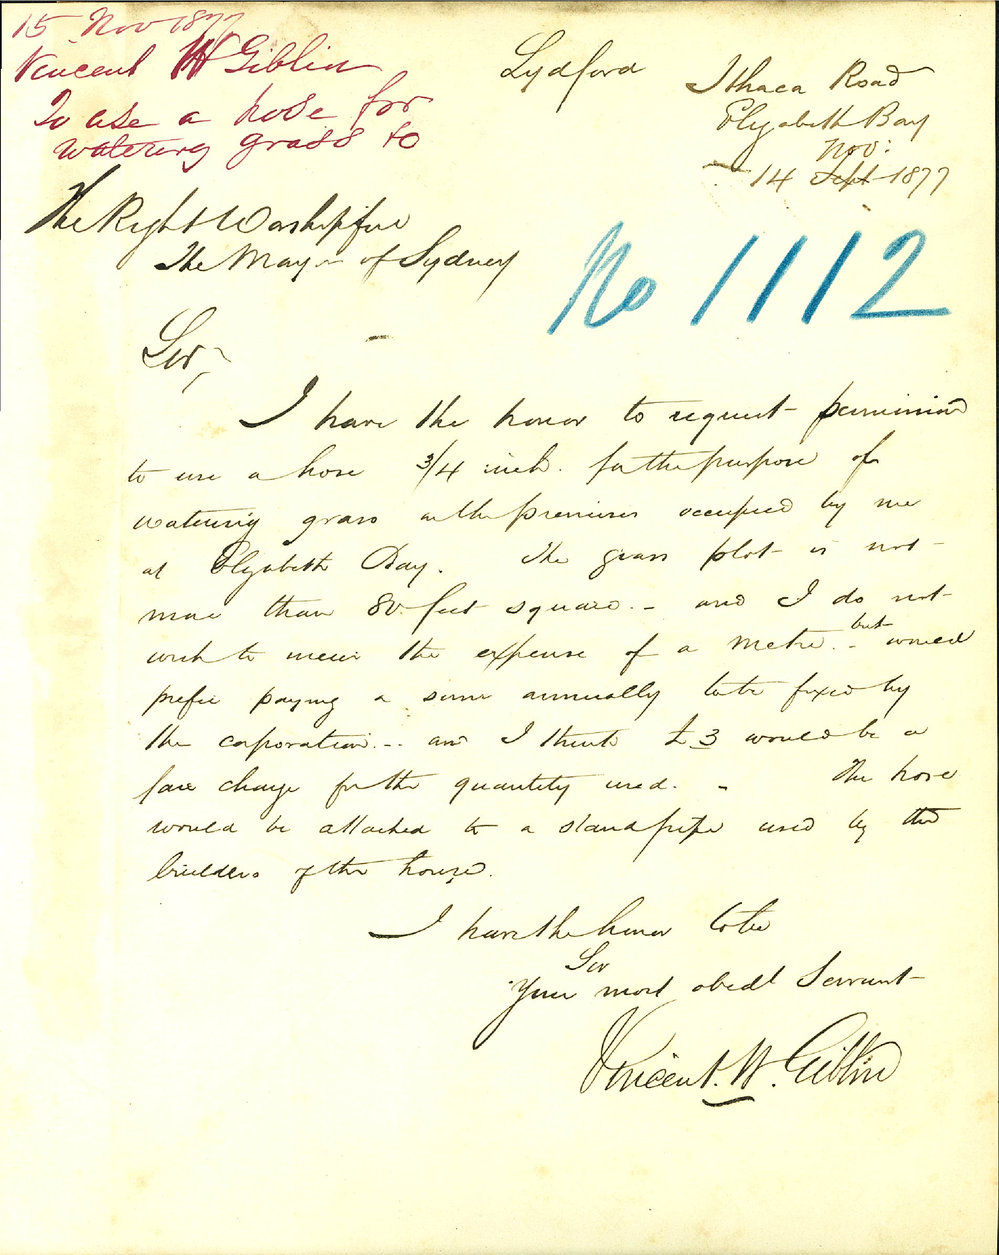 15 Nov 1877
Vincent W Giblin
To use a hose for
watering grass &c
Lydford
Ithaca Road
Elizabeth Bay
Nov:
14 Sept 1877
The Right Worshipful
The Mayor of Sydney
No 1112
Sir,
I have the honor to request permission
to use a hose 3/4 inch. for the purpose of
watering grass on the premises occupied by me
at Elizabeth Bay. The grass plot is not
more than 80 feet square. - and I do not
wish to incur the expense of a metre. - but would
prefer paying a sum annually to be fixed by
the corporation. - and I think £3 would be a
fair charge for the quantity used. - The hose
would be attached to a standpipe used by the
builders of the house.
I have the honor to be
Sir
Your most obedt Servant
Vincent. W. Giblin